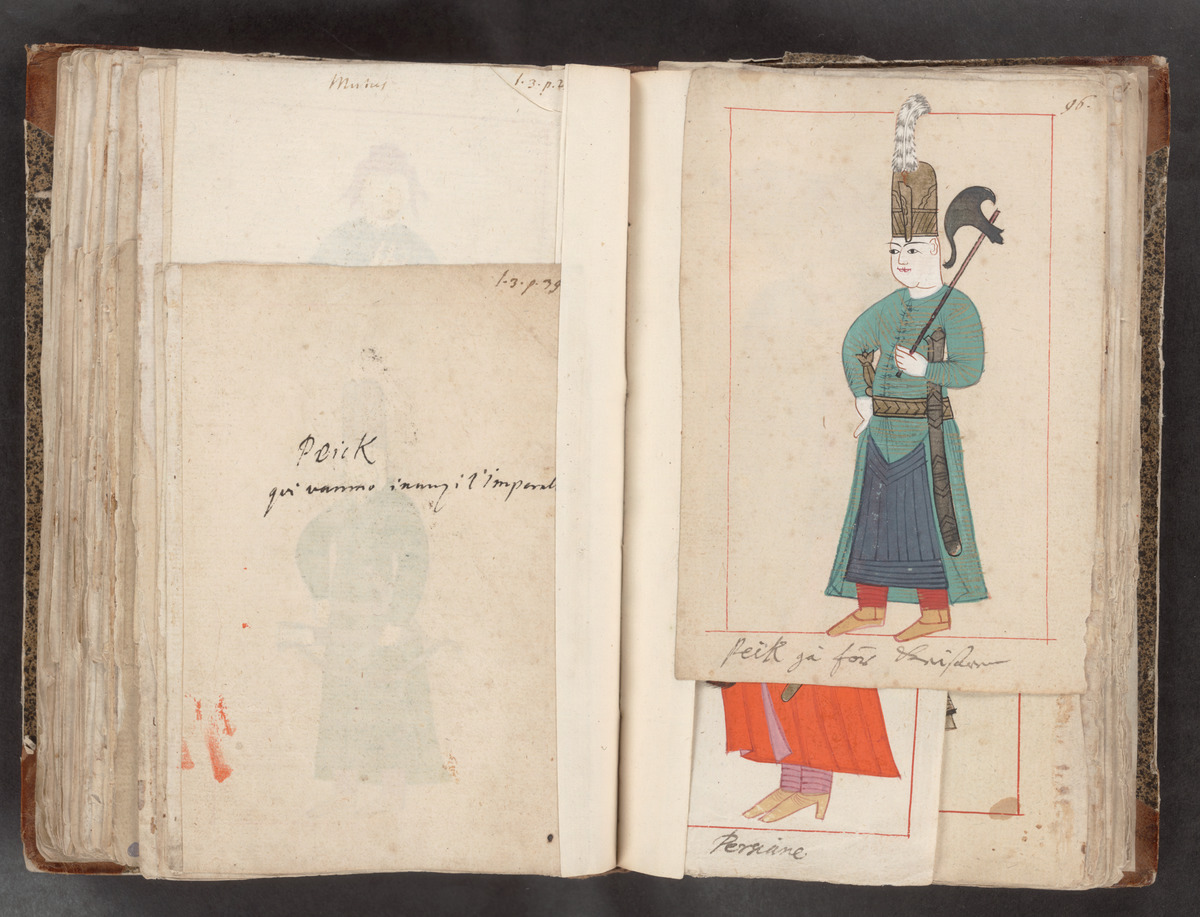 Mutus
l·3·p·2
l·3·p·39
Peick
qui vanno inanzi l'Imperat
96·
Peik gå för
Persiane